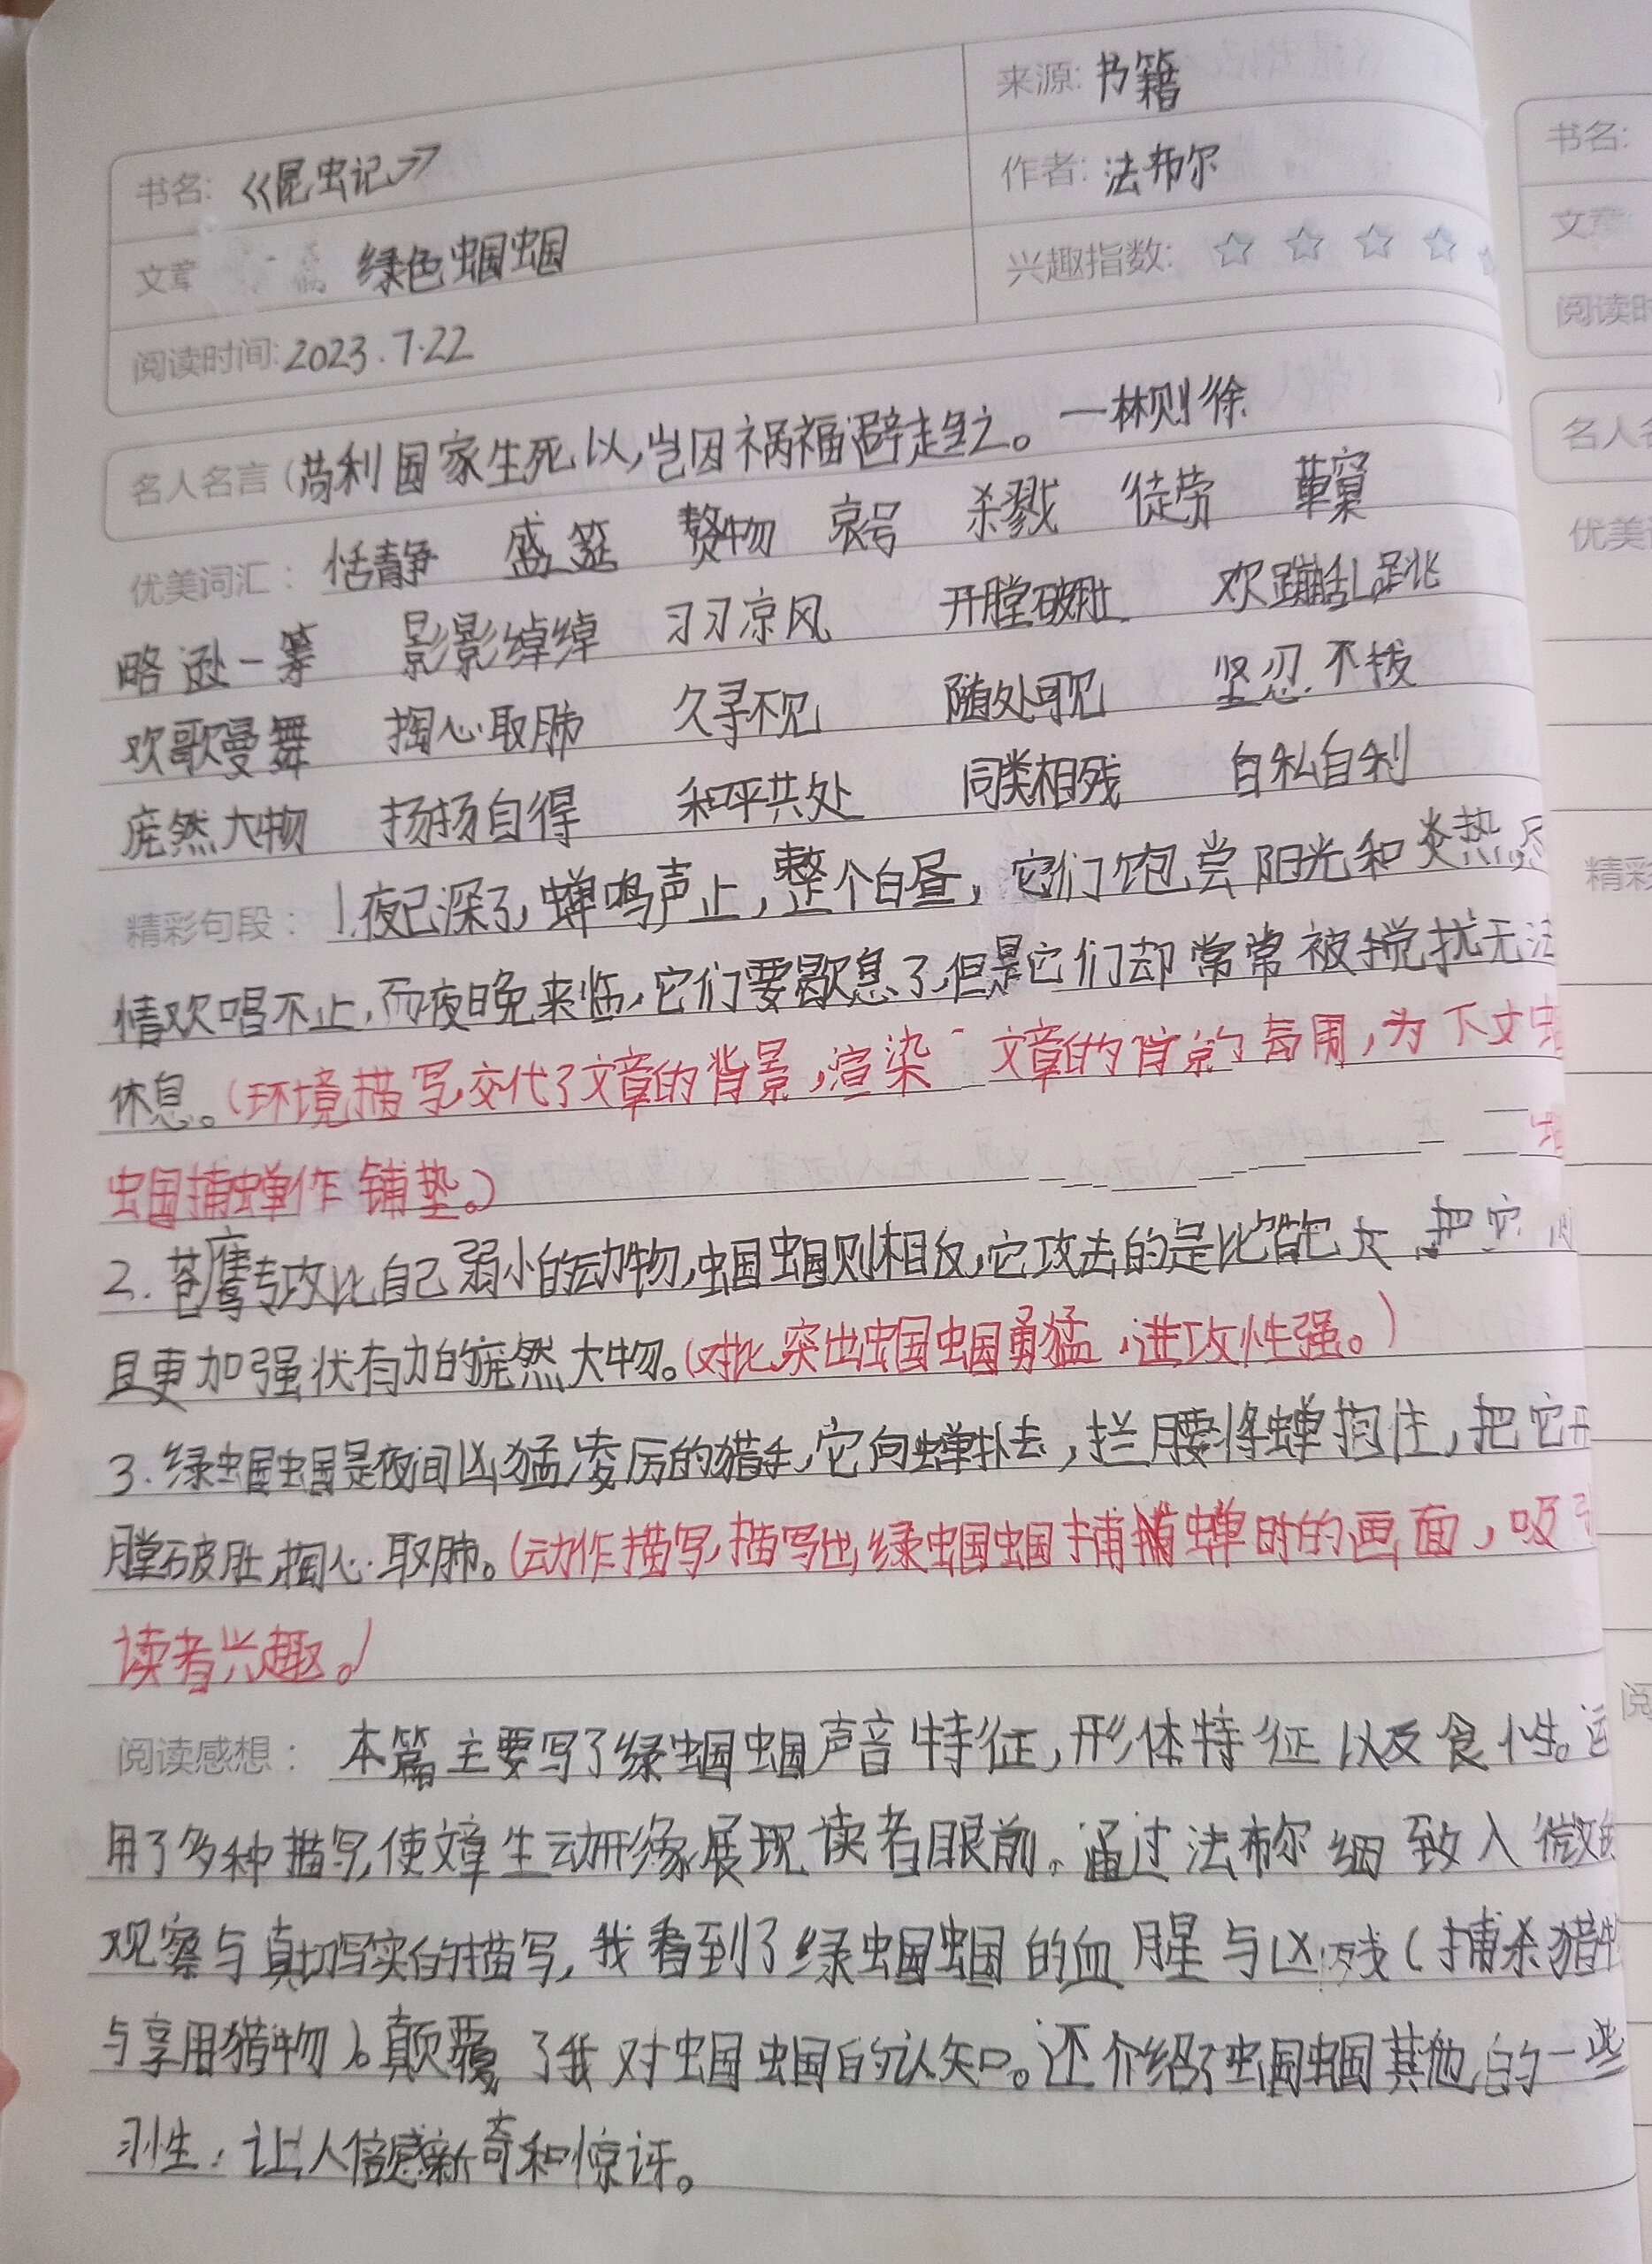 来源: 书籍
书名: 《昆虫记》
作者: 法布尔
文章 绿色蝈蝈
兴趣指数: ☆ ☆ ☆ ☆
阅读时间: 2023.7.22
名人名言(苟利国家生死以,岂因祸福避趋之。一林则徐
优美词汇: 恬静 盛筵 赘物 哀号 杀戮 徒劳
略逊一筹 影影绰绰 习习凉风 开膛破肚 欢蹦乱跳
欢歌曼舞 掏心取肺 久寻不见 随处可见 坚忍不拔
庞然大物 扬扬自得 和平共处 同类相残 自私自利
精彩句段: 1.夜已深了,蝉鸣声止,整个白昼,它们饱尝阳光和炎热,尽
情欢唱不止,而夜晚来临,它们要歇息了,但是它们却常常被搅扰无法
休息。(环境描写,交代了文章的背景,渲染 文章的背景的 ,为下文
蝈捕蝉作铺垫。)
2.苍鹰专攻比自己弱小的动物,蝈蝈则相反,它攻击的是比 大 把它
且更加强状有力的庞然大物。(对比,突出蝈蝈勇猛,进攻性强。)
3.绿蝈蝈是夜间凶猛凌厉的猎手,它向蝉扑去,拦腰将蝉抱住,把它开
膛破肚,掏心取肺。(动作描写,描写出绿蝈蝈捕捕蝉时的画面,吸引
读者兴趣。)
阅读感想: 本篇主要写了绿蝈蝈声音特征,形体特征以及食性。运
用了多种描写,使文章生动形象展现读者眼前。通过法布尔细致入微的
观察与真切写实的描写,我看到了绿蝈蝈的血腥与凶残(捕杀猎物
与享用猎物)。颠覆了我对蝈蝈的认知。还介绍了蝈蝈其他的一些
习性,让人倍感新奇和惊讶。
书名:
文章
阅读时
名人名
优美词
精彩
阅